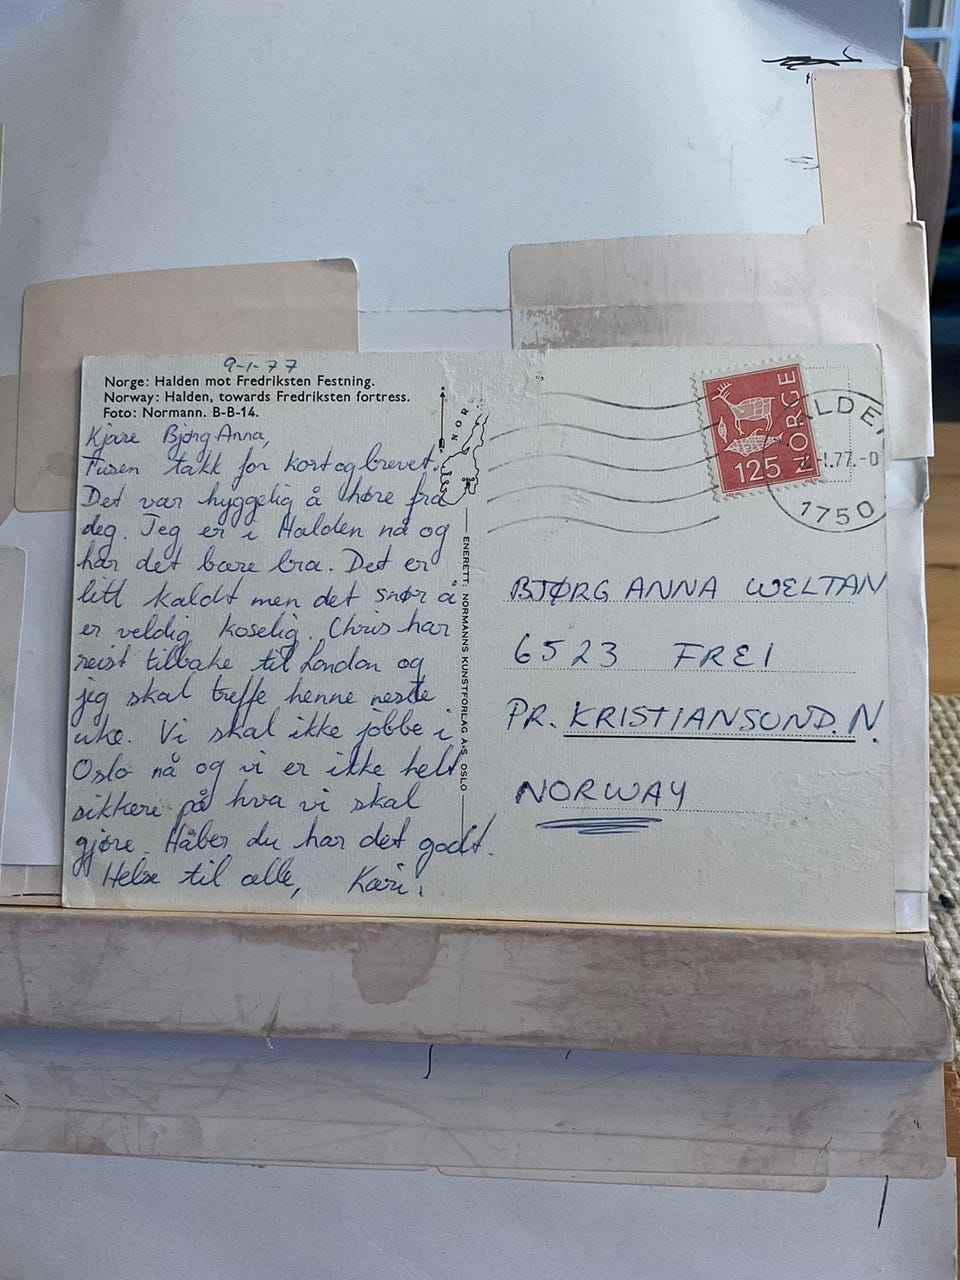 9-1-77
Norge: Halden mot Fredriksten Festning.
Norway: Halden, towards Fredriksten fortress.
Foto: Normann. B-B-14.
Kjære Bjørg Anna,
Tusen takk for kort og brevet.
Det var hyggelig å høre fra
deg. Jeg er i Halden nå og
har det bare bra. Det er
litt kaldt men det snør å
er veldig koselig. Chris har
reist tilbake til London og
jeg skal treffe henne neste
uke. Vi skal ikke jobbe i
Oslo nå og vi er ikke helt
sikkere på hva vi skal
gjøre. Håber du har det godt.
Helse til alle, Kari.
NOR
OSLO
ENERETT: NORMANNS KUNSTFORLAG A·S OSLO
NORGE
125
ALDE
1.77.-0
1750
BJØRG ANNA WELTAN
6523 FREI
PR. KRISTIANSUND. N.
NORWAY